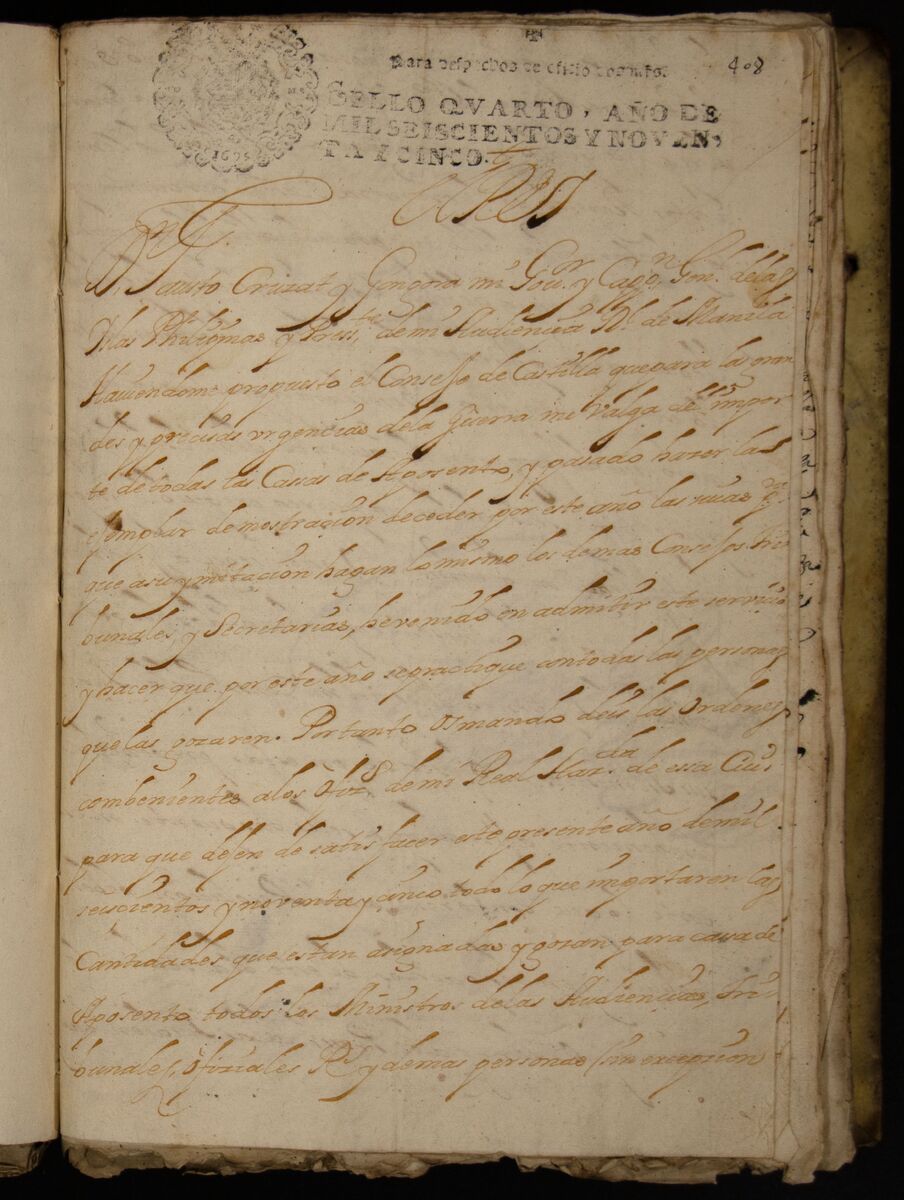 Para despachos de oficio dos mrs.
408
SELLO QVARTO, AÑO DE
MIL SEISCIENTOS Y NOVEN,
TA Y CINCO.
1695
El Rey
Dn Fausto Cruzat y Gongora mi Gour. y Capn. Genl. delas
Yslas Philipinas y Presste. de mi Audiencia Rl. de Manila
Hauiendome propuesto el Consejo de Castilla que para las gran
des y precisas vrgencias dela Guerra me Valga del impor
te de todas las Casas de Aposento, y pasado hazer la
exemplar demostracion de ceder por este año las suias pa.
que a su ymitacion hagan lo mismo los demas Consejos, Tri
bunales y Secretarias, he venido en admitir este seruicio
y hacer que por este año se practique con todas las personas
que las gozaren. Portanto os mando deis las ordenes
combenientes alos ofizs. de mi Real Hazda. de essa Ciud
para que dejen de satisfacer este presente año de mil
seiscientos y noventa y cinco todo lo que importaren las
Cantidades que estan asignadas y gozan para casa de
Aposento todos los Ministros delas Audiencias, tri
bunales, ofiziales Rs. y demas personas sin excepcion